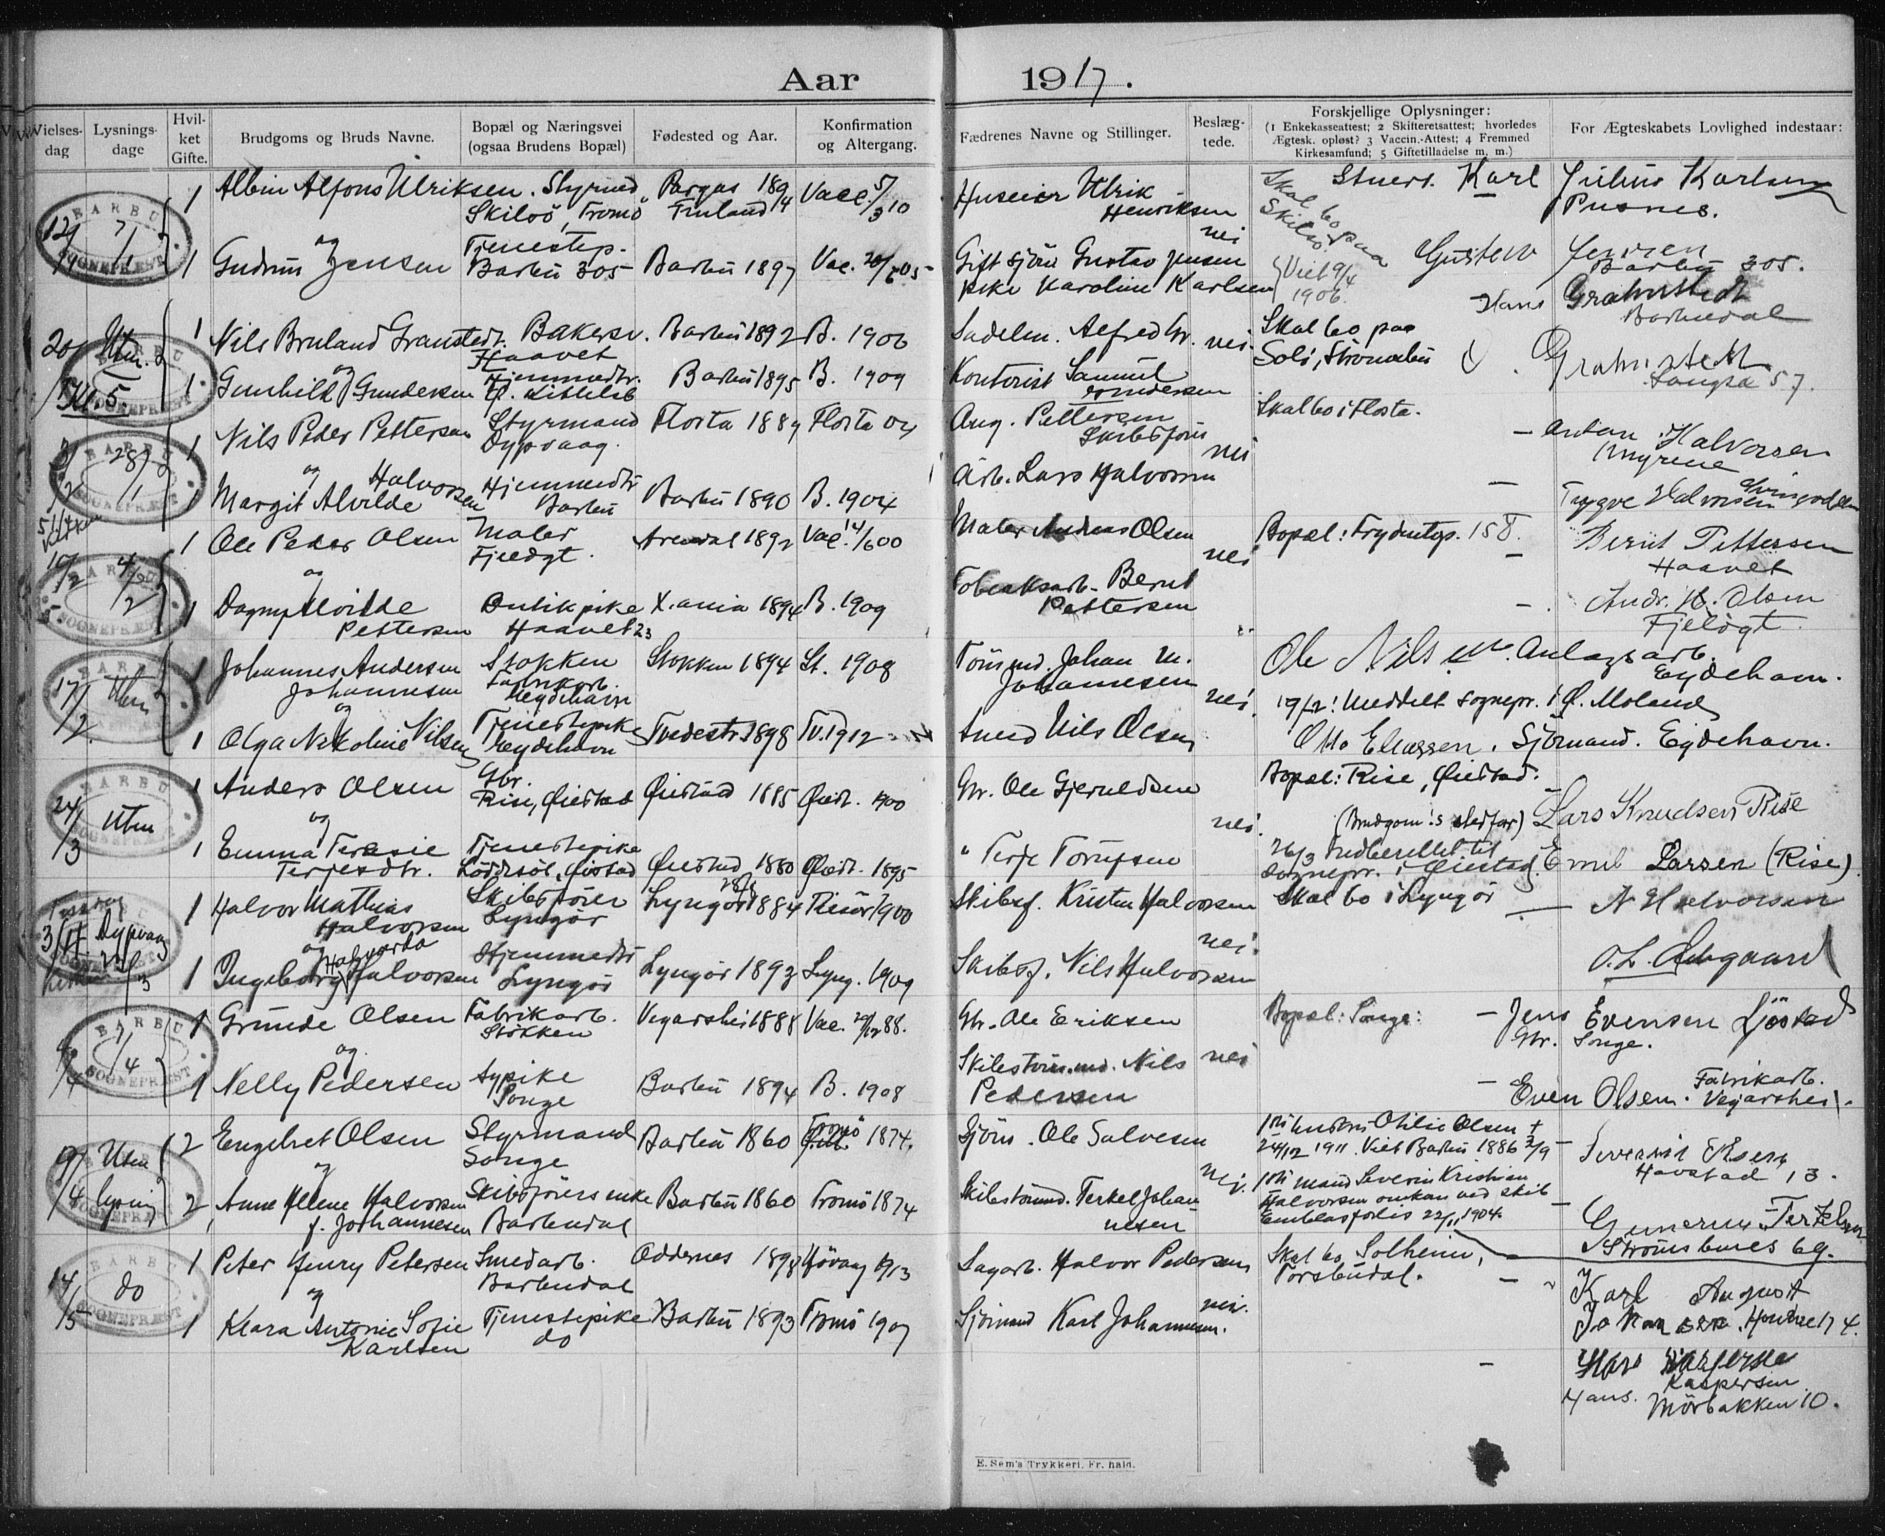 Aar 1917.
Vielses-dag
Lysnings-dage
Hvil-ket Gifte.
Brudgoms og Bruds Navne.
Bopæl og Næringsvei (ogsaa Brudens Bopæl)
Fødested og Aar.
Konfirmation og Altergang.
Fædrenes Navne og Stillinger.
Beslæg-tede.
Forskjellige Oplysninger:
(1 Enkekasseattest; 2 Skifteretsattest; hvorledes
Ægtesk. opløst? 3 Vaccin.-Attest; 4 Fremmed
Kirkesamfund; 5 Giftetilladelse m. m.)
For Ægteskabets Lovlighed indestaar:
BARBU SOGNEPRÆST
1 Albin Alfons Ulriksen. Styrmd Pargas 189 Vacc.
Skilsø, Tromø Finland
Huseier Ulrik
Henriksen
Skal bo paa
Skilsø.
Stuert. Karl Julius Karlsen
Pusnes.
og
Tjenestep.
1 Gudrun Jensen Barbu 305 Barbu 1897 Vac.
Gift sjöm Gustav Jensen nei
pike Karoline Karlsen
Viet 9/4
1906.
Gustav Jensen
Barbu 305.
BARBU SOGNEPRÆST
20 Uten
1 Nils Bruland Granstedt. Bakersv. Barbu 1892 B. 1906
Haavet
Sadelm. Alfred Gr. nei
Skal bo paa
Solö, Strömsbu
Hans Grahnstedt
Barbudal
og
1 Gunhild Gundersen Hjemmedtr. Barbu 1895 B. 1909
Kontorist Samuel
Gundersen
Grahnstedt
Langsæ 57.
BARBU SOGNEPRÆST
3/2 28/1
1 Nils Peder Pettersen Styrmand Flosta 1889 Flosta 04
Dypvaag.
Aug. Pettersen
Skibsförer
nei
Skal bo i Flosta.
- Anton Halvorsen
Myrene
og Halvorsen
1 Margit Alvilde Hjemmedtr Barbu 1890 B. 1904
Barbu
Arb. Lars Halvorsen
- Trygve Halvorsen
BARBU SOGNEPRÆST
10/2 4/2
1 Ole Peder Olsen Maler Arendal 1892 Vac. 14/6 00
Fjeldgt.
Maler Andreas Olsen nei
Bopæl: Frydentop. 158.
- Bernt Pettersen
Haavet
og
1 Dagny Alvilde Butikpike X.ania 1894 B. 1909
Pettersen Haavet 23
Tobaksarb. Bernt
Pettersen
- Andr. H. Olsen
Fjeldgt.
BARBU SOGNEPRÆST
17/2 Uten
1 Johannes Andersen Stokken Stokken 1894 St. 1908
Johannesen Fabrikarb.
Eydehavn
Tömmd. Johan M.
Johannesen
nei.
Ole Nilsen. Anlagsarb.
Eydehavn.
19/2! Meddelt sognepr. i Ø. Moland
og
1 Olga Nikoline Nilsen Tjenestepike Tvedestr. 1898 Tv. 1912
Eydehavn
Arend Nils Olsen
Otto Eliassen. Sjömand. Eydehavn.
BARBU SOGNEPRÆST
24/3 Uten
1 Anders Olsen Gbr. Øiestad 1885 Øiest. 1900
Rise, Øiestad
Gbr. Ole Gjeruldsen nei.
Bopæl: Rise, Øiestad.
(Brudgom's stedfar) Lars Knudsen Rise
og
1 Emma Terasie Tjenestepike
Terjesdtr. Löddesöl, Øiestad Øiestad 1880 Øiest. 1895
" Terje Torufsen
26/3 Indberettet til
Sognepr. i Øiestad
Emil Larsen (Rise).
BARBU SOGNEPRÆST
Dypvaag
1 Halvor Mathias Skibsförer Lyngör 1884 Risör 1900
Halvorsen Lyngör
Skibsf. Kristen Halvorsen nei.
Skal bo i Lyngör
- N Halvorsen
og Halvarda
1 Ingeborg Halvorsen Hjemmedtr Lyngör 1893 Lyng. 1909
Lyngör
Skibsf. Nils Halvorsen
O. L. Aabgaard
BARBU SOGNEPRÆST
1/4
1 Grunde Olsen Fabrikarb. Vegarshei 1888 Vac. 88.
Stokken
Gbr. Ole Eriksen nei
Bopæl: Songe:
- Jens Evensen Ljöstad
Gbr. Songe.
og
1 Nelly Pedersen Sypike Barbu 1894 B. 1908
Songe
Skibstöm.md. Nils
Pedersen
- Even Olsen. Fabrikarb.
Vegarshei.
BARBU SOGNEPRÆST
9/4 Uten lysning
2 Engebret Olsen Styrmand Barbu 1860 Tromö 1874.
Songe
Sjöm. Ole Salvesen nei.
1ste hustru Otilie Olsen +
24/12 1911. Viet Barbu 1886 3/9 -
Havstad 13.
og
2 Anne Helene Halvorsen Skibsförers enke Barbu 1860 Tromö 1874
f. Johannesen Barbudal
Skibstömmd. Terkel Johan-
nesen
1ste mand Severin Kristian
Halvorsen omkom ved skib
Emblas forlis 22/11 1904.
Gunerius Terkelsen
Strömsbunes 69.
BARBU SOGNEPRÆST
14/5 do
1 Peter Henry Petersen Smedarb. Oddernes 1898 Hövaag 1913
Barbudal
Sagarb. Halvor Pedersen nei.
Skal bo Solheim,
Torsbudal.
- Karl August
Johansen. 174.
og
1 Klara Antonie Sofie Tjenestepike Barbu 1893 Tromö 1907
Karlsen do
Sjömand Karl Johannesen.
- Hans Kaspersen
Kaspersen
Hans. Mörbakken 10.
E. Sem's Trykkeri, Fr. hald.